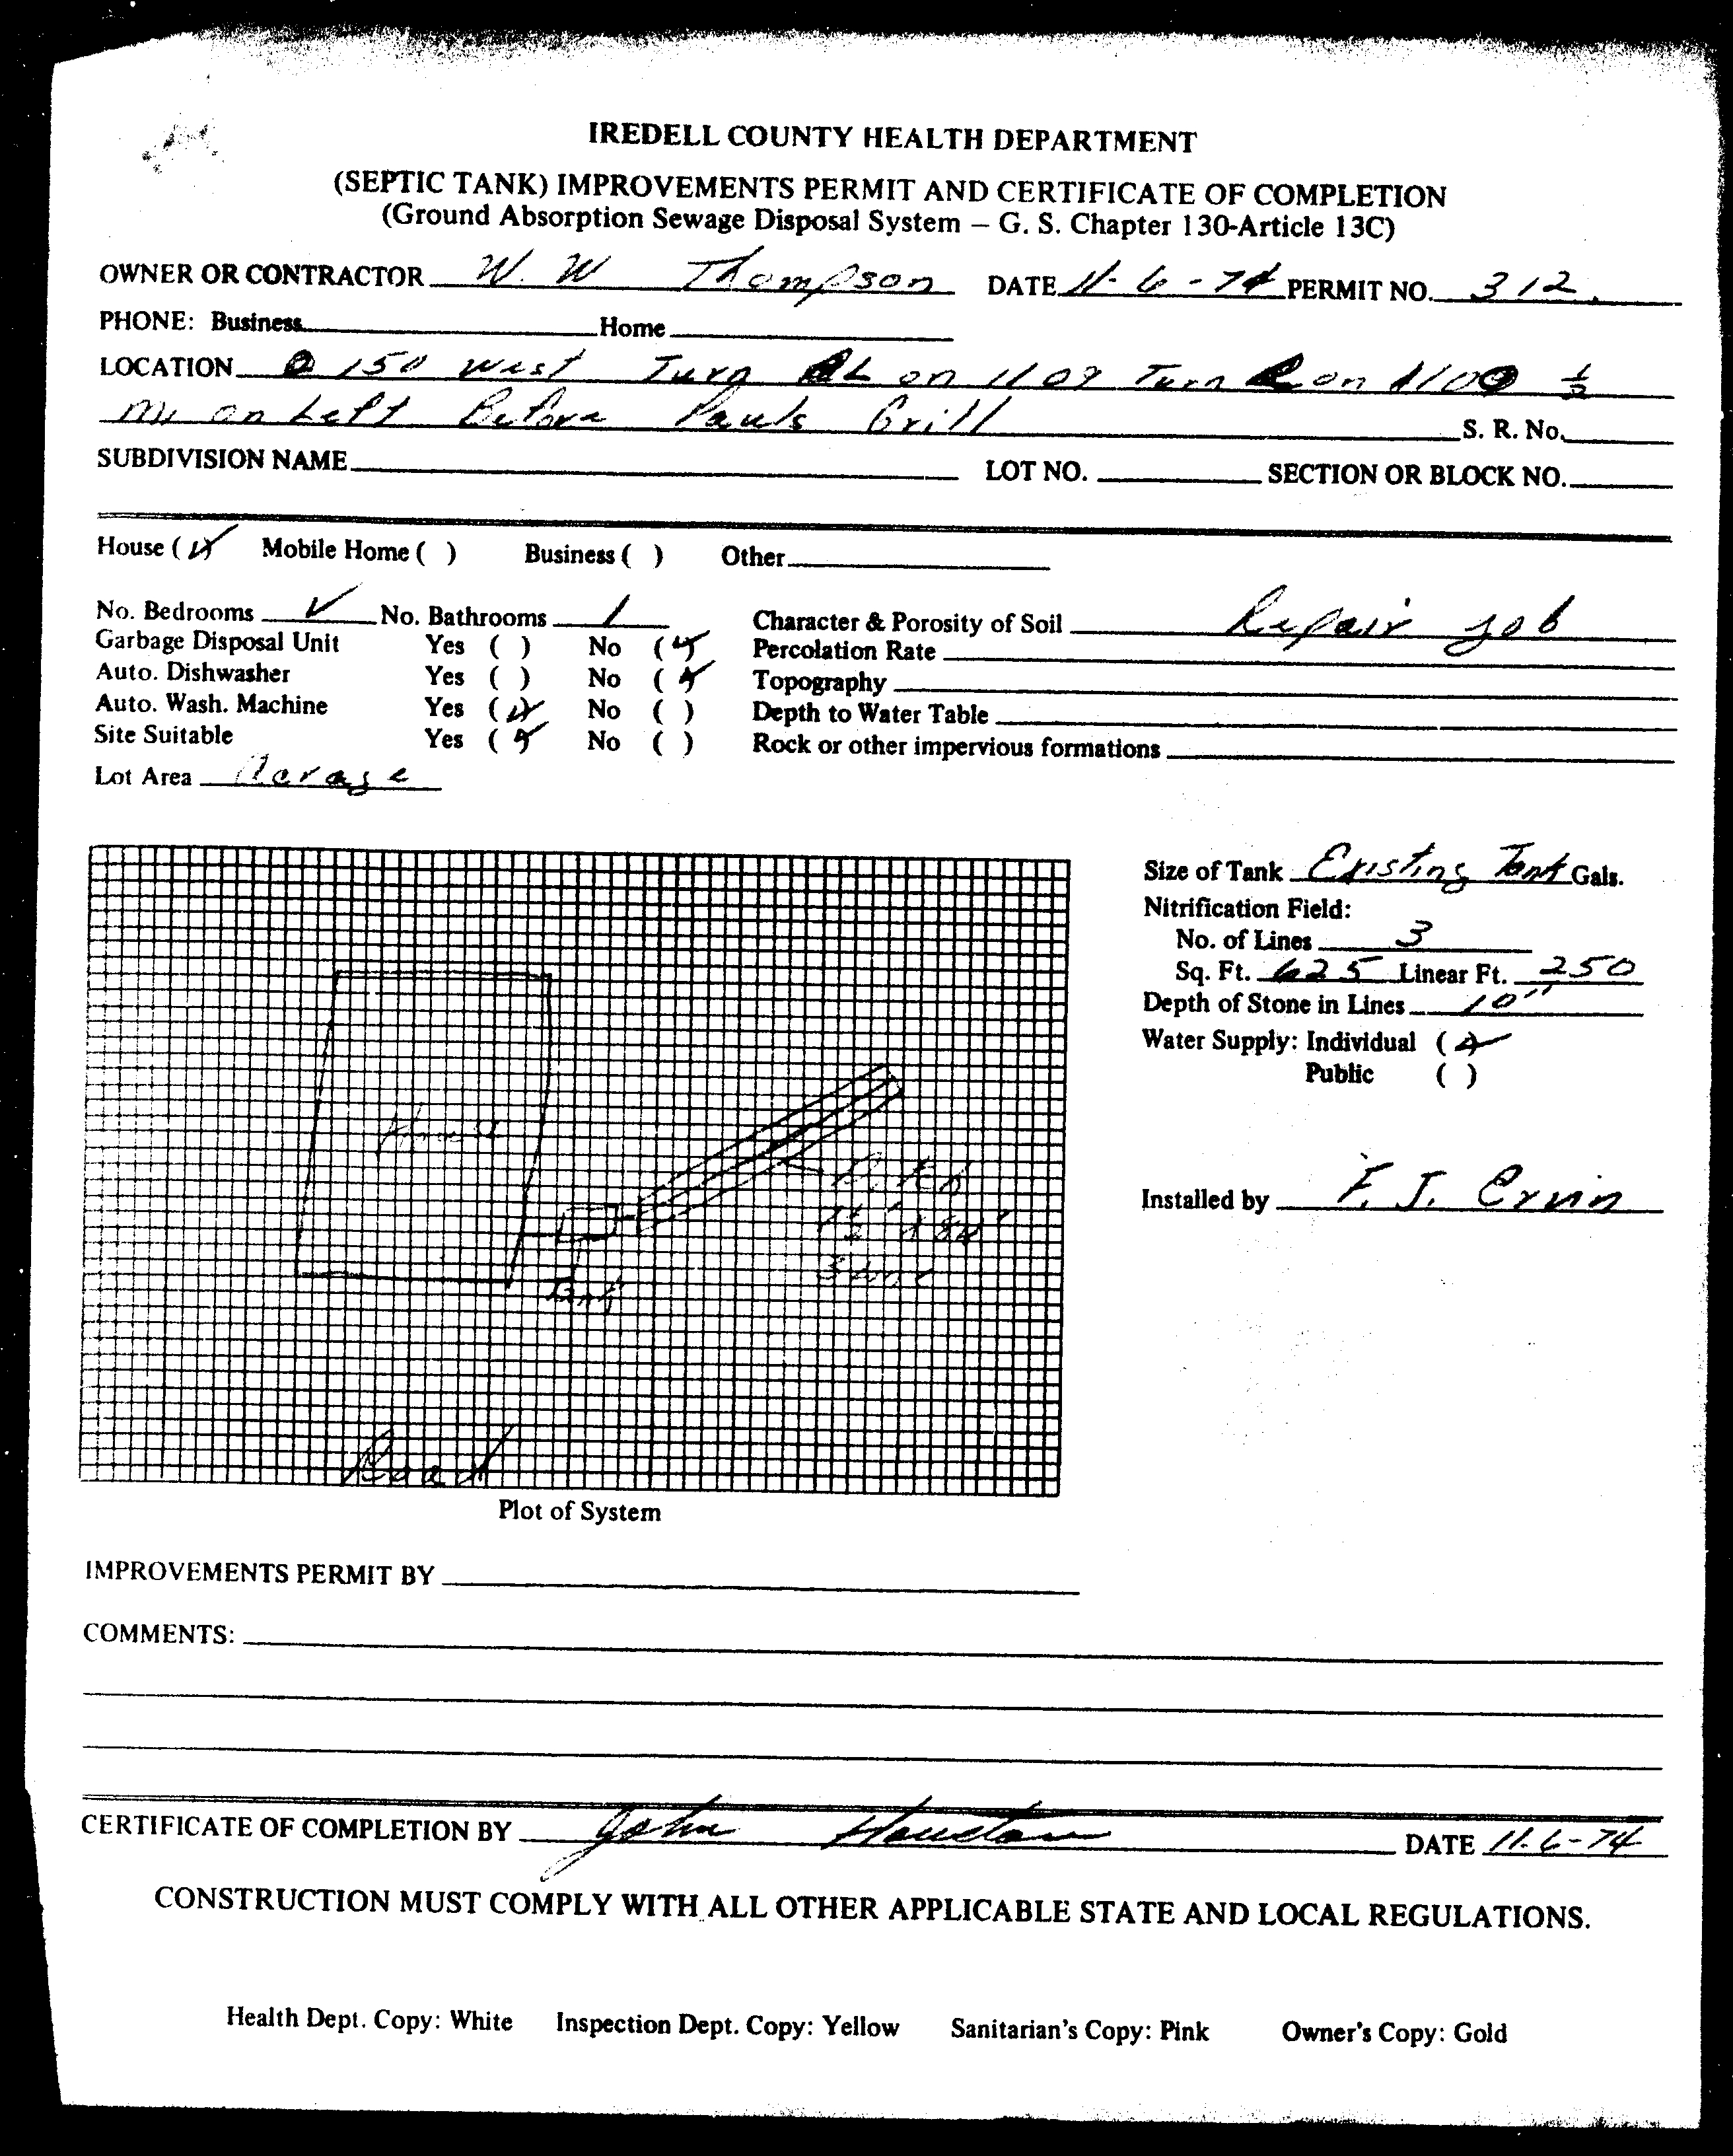 IREDELL COUNTY HEALTH DEPARTMENT
(SEPTIC TANK) IMPROVEMENTS PERMIT AND CERTIFICATE OF COMPLETION
(Ground Absorption Sewage Disposal System – G. S. Chapter 130-Article 13C)
OWNER OR CONTRACTOR W. W Thompson DATE 11-6-74 PERMIT NO. 312
PHONE: Business Home
LOCATION 150 West Turn L on 1109 Turn on 1100 1/2
Mi on Left Before Pauls Grill S. R. No.
SUBDIVISION NAME LOT NO. SECTION OR BLOCK NO.
House (✓) Mobile Home ( ) Business ( ) Other
No. Bedrooms ✓ No. Bathrooms 1 Character & Porosity of Soil Repair job
Garbage Disposal Unit Yes ( ) No (✓) Percolation Rate
Auto. Dishwasher Yes ( ) No (✓) Topography
Auto. Wash. Machine Yes (✓) No ( ) Depth to Water Table
Site Suitable Yes (✓) No ( ) Rock or other impervious formations
Lot Area Acrage
Size of Tank Existing Tank Gals.
Nitrification Field:
No. of Lines 3
Sq. Ft. 625 Linear Ft. 250
Depth of Stone in Lines 10"
Water Supply: Individual (✓)
Public ( )
House
Installed by F. J. Ervin
Tank
Road
Plot of System
IMPROVEMENTS PERMIT BY
COMMENTS:
CERTIFICATE OF COMPLETION BY John Houston DATE 11-6-74
CONSTRUCTION MUST COMPLY WITH ALL OTHER APPLICABLE STATE AND LOCAL REGULATIONS.
Health Dept. Copy: White Inspection Dept. Copy: Yellow Sanitarian's Copy: Pink Owner's Copy: Gold